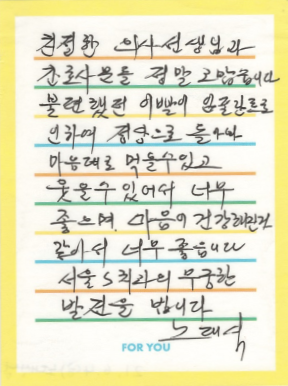 친절한 의사선생님과
간호사분들 정말 고맙습니다
불편했던 이빨이 임플란트로
인하여 정상으로 돌아와
마음대로 먹을수있고
웃을수있어서 너무
좋으며, 마음이 건강해진거
같아서 너무 좋습니다
서울S치과의 무궁한
발전을 빕니다
노대석
FOR YOU